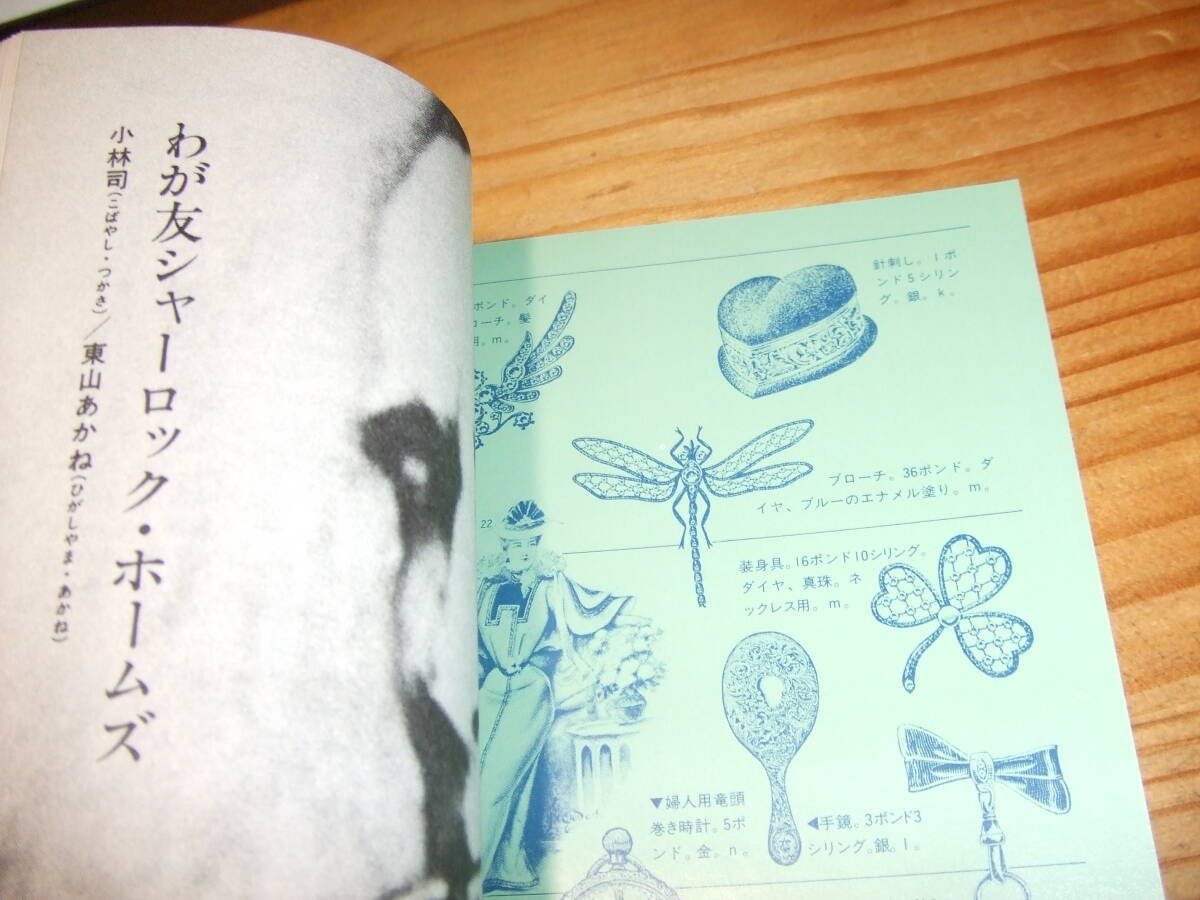 わが友シャーロック・ホームズ
小林司(こばやし・つかさ)/東山あかね(ひがしやま・あかね)
ポンド。ダイ
ローチ。髪
用。m。
針刺し。1ポ
ンド5シリン
グ。銀。k。
ブローチ。36ポンド。ダ
イヤ、ブルーのエナメル塗り。m。
22
装身具。16ポンド10シリング。
ダイヤ、真珠。ネ
ックレス用。m。
▼婦人用竜頭
巻き時計。5ポ
ンド。金。n。
◀手鏡。3ポンド3
シリング。銀。l。